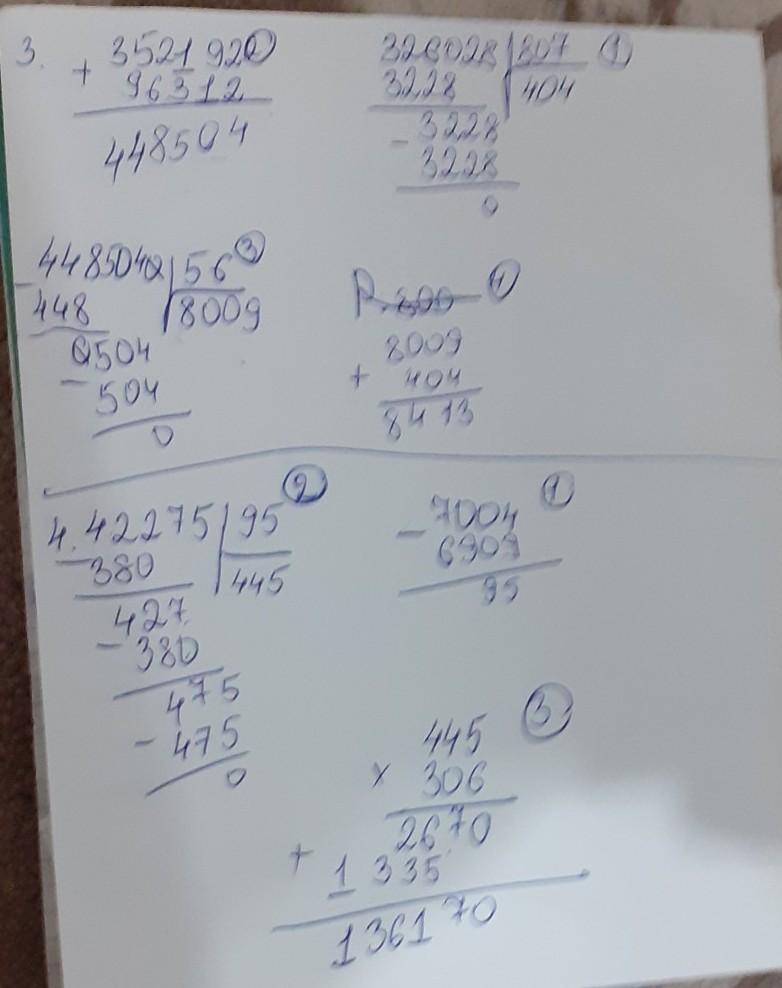 3. 352192 ②
+ 96312
448504
326028 | 807 ①
3228 | 404
- 3228
3228
0
- 448504 | 56 ③
448 | 8009
0504
- 504
0
④
8009
+ 404
8413
4. 42275 | 95 ②
- 380 | 445
427
- 380
475
- 475
0
- 7004 ①
6909
95
445 ③
x 306
2670
+ 1335
136170